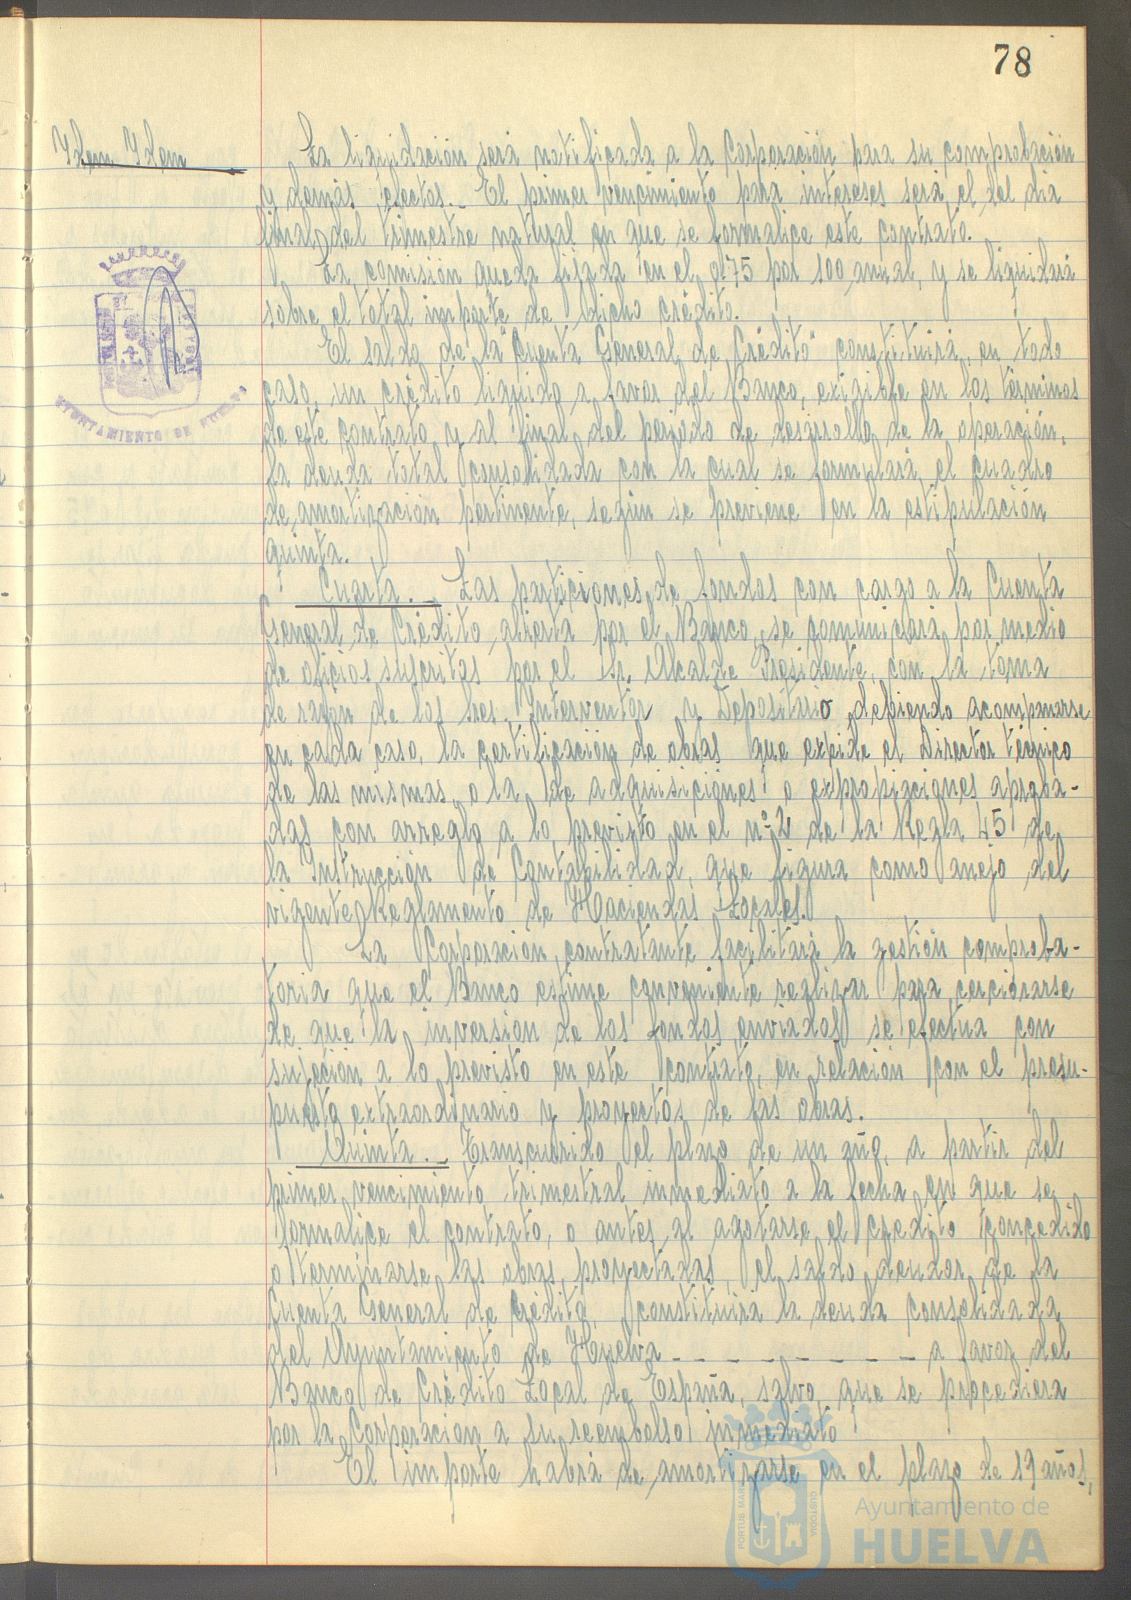 78
Ydem Ydem
La liquidación será notificada a la Corporación para su comprobación
y demás efectos._ El primer vencimiento para intereses será el del día
final del trimestre natural en que se formalice este contrato.
La comisión queda fijada en el 0'75 por 100 anual, y se liquidará
sobre el total importe de dicho crédito.
El saldo de la "Cuenta General de Crédito" constituirá, en todo
caso, un crédito líquido a favor del Banco, exigible en los términos
de este contrato y al final del período de desarrollo de la operación,
la deuda total consolidada con la cual se formulará el cuadro
de amortización pertinente, según se previene en la estipulación
quinta.
Cuarta._ Las particiones de fondos con cargo a la Cuenta
General de Crédito abierta por el Banco, se comunicará por medio
de oficios suscritos por el Sr. Alcalde Presidente, con la toma
de razón de los Sres. Interventor y Depositario debiendo acompañarse
en cada caso, la certificación de obras que expide el Director técnico
de las mismas, o la de adquisiciones o expropiaciones aproba-
das con arreglo a lo previsto en el nº 2 de la Regla 45 de
la Instrucción de Contabilidad, que figura como anejo del
vigente Reglamento de Haciendas Locales.
La Corporación contratante facilitará la gestión comproba-
toria que el Banco estime conveniente realizar para cerciorarse
de que la inversión de los fondos enviados se efectúa con
sujeción a lo previsto en este contrato, en relación con el presu-
puesto extraordinario y proyectos de las obras.
Quinta._ Transcurrido el plazo de un año, a partir del
primer vencimiento trimestral inmediato a la fecha en que se
formalice el contrato, o antes al agotarse el crédito concedido
o terminarse las obras proyectadas, el saldo deudor de la
Cuenta General de Crédito, constituirá la deuda consolidada
del Ayuntamiento de Huelva _ _ _ _ _ _ _ _ _ _ a favor del
Banco de Crédito Local de España, salvo que se procediera
por la Corporación a su reembolso inmediato
El importe habrá de amortizarse en el plazo de 19 años,
AYUNTAMIENTO DE HUELVA
PORTUS MARIS
CUSTODIA
Ayuntamiento de
HUELVA